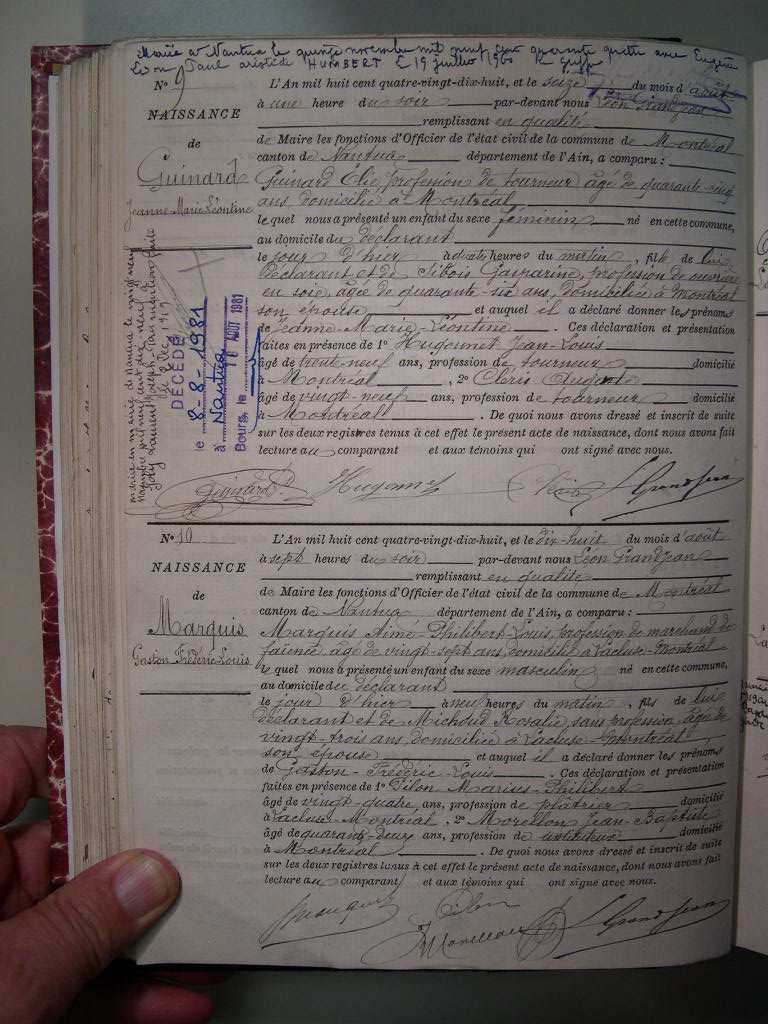 Mariée à Nantua le quinze novembre mil neuf cent quarante quatre avec Eugène
Léon Paul Aristide HUMBERT le 19 juillet 1960
N° 9
NAISSANCE
de
Guinard
Jeanne-Marie-Léontine
L'An mil huit cent quatre-vingt-dix-huit, et le seize du mois d'août
à une heure du soir par-devant nous Léon Grandjean
remplissant en qualité
de Maire les fonctions d'Officier de l'état civil de la commune de Montréal
canton de Nantua département de l'Ain, a comparu :
Guinard Élie, profession de tourneur âgé de quarante-cinq
ans domicilié à Montréal
lequel nous a présenté un enfant du sexe féminin né en cette commune,
au domicile du déclarant
le jour d'hier à heures du matin, fille de lui
déclarant et de Gasparine, profession de ouvrière
en soie, âgée de quarante-six ans, domiciliée à Montréal
son épouse et auquel il a déclaré donner les prénoms
de Jeanne-Marie-Léontine. Ces déclaration et présentation
faites en présence de 1° Hugonnet Jean-Louis
âgé de trente-neuf ans, profession de tourneur domicilié
à Montréal, 2°
âgé de vingt-neuf ans, profession de tourneur domicilié
à Montréal. De quoi nous avons dressé et inscrit de suite
sur les deux registres tenus à cet effet le présent acte de naissance, dont nous avons fait
lecture au comparant et aux témoins qui ont signé avec nous.
Guinard Hugonnet Grandjean
DÉCÉDÉ
le 8-8-1981
à Nantua
Bourg, le 11 AOUT 1981
N° 10
NAISSANCE
de
Marquis
Gaston Frédéric Louis
L'An mil huit cent quatre-vingt-dix-huit, et le dix-huit du mois d'août
à sept heures du soir par-devant nous Léon Grandjean
remplissant en qualité
de Maire les fonctions d'Officier de l'état civil de la commune de Montréal
canton de Nantua département de l'Ain, a comparu :
Marquis Aimé-Philibert-Louis, profession de marchand de
faïence, âgé de vingt-sept ans, domicilié à Lacluse-Montréal
lequel nous a présenté un enfant du sexe masculin né en cette commune,
au domicile du déclarant
le jour d'hier à neuf heures du matin, fils de lui
déclarant et de Michoud Rosalie, sans profession, âgée de
vingt-trois ans, domiciliée à Lacluse-Montréal
son épouse et auquel il a déclaré donner les prénoms
de Gaston-Frédéric-Louis. Ces déclaration et présentation
faites en présence de 1° Marius-Philibert
âgé de vingt-quatre ans, profession de plâtrier domicilié
à Lacluse-Montréal, 2° Morellon Jean-Baptiste
âgé de quarante-deux ans, profession de instituteur domicilié
à Montréal. De quoi nous avons dressé et inscrit de suite
sur les deux registres tenus à cet effet le présent acte de naissance, dont nous avons fait
lecture au comparant et aux témoins qui ont signé avec nous.
Marquis
Morellon Grandjean